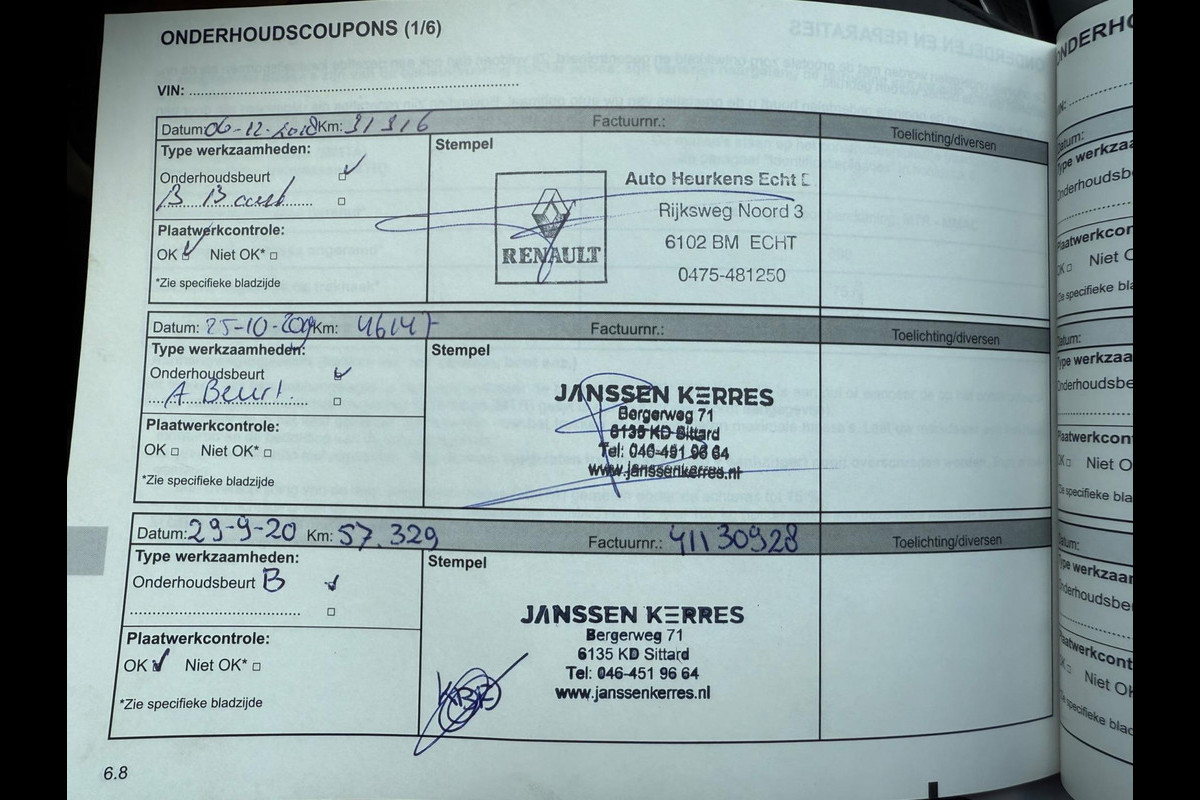 ONDERHOUDSCOUPONS (1/6)
VIN:
Datum: 06-12-2018 Km: 31316 Factuurnr.: Toelichting/diversen
Type werkzaamheden: Stempel
Onderhoudsbeurt
B Beurt
Plaatwerkcontrole:
OK Niet OK*
*Zie specifieke bladzijde
RENAULT
Auto Heurkens Echt
Rijksweg Noord 3
6102 BM ECHT
0475-481250
Datum: 25-10-2019 Km: 46147 Factuurnr.: Toelichting/diversen
Type werkzaamheden: Stempel
Onderhoudsbeurt
A Beurt
Plaatwerkcontrole:
OK Niet OK*
*Zie specifieke bladzijde
JANSSEN KERRES
Bergerweg 71
6135 KD Sittard
Tel: 046-451 96 64
www.janssenkerres.nl
Datum: 29-9-20 Km: 57.329 Factuurnr.: 41130928 Toelichting/diversen
Type werkzaamheden: Stempel
Onderhoudsbeurt B
Plaatwerkcontrole:
OK Niet OK*
*Zie specifieke bladzijde
JANSSEN KERRES
Bergerweg 71
6135 KD Sittard
Tel: 046-451 96 64
www.janssenkerres.nl
6.8
Datum:
Onderhoudsbe
OK Niet O
Datum:
Type werkzaa
Onderhoudsbe
Plaatwerkcont
OK Niet O
*Zie specifieke bla
Datum:
Type werkzaar
Onderhoudsbe
Plaatwerkcont
OK Niet OK
*Zie specifieke blad